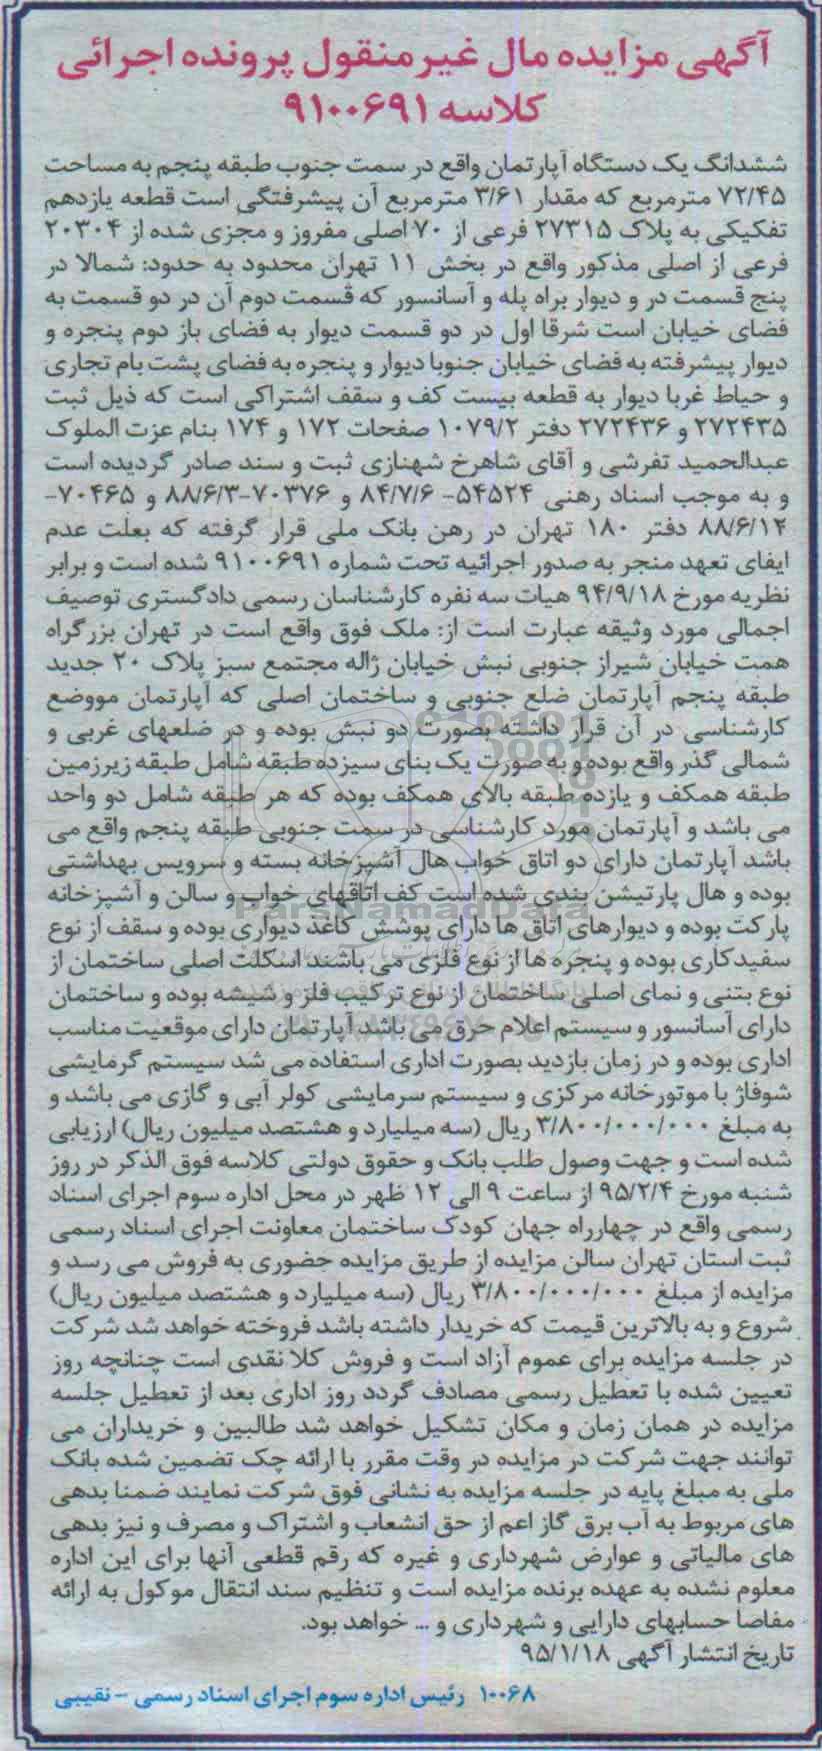 آگهی مزایده مال غیرمنقول پرونده اجرائی
کلاسه ۹۱۰۰۶۹۱
ششدانگ یک دستگاه آپارتمان واقع در سمت جنوب طبقه پنجم به مساحت
۷۲/۴۵ مترمربع که مقدار ۳/۶۱ مترمربع آن پیشرفتگی است قطعه یازدهم
تفکیکی به پلاک ۲۷۳۱۵ فرعی از ۷۰ اصلی مفروز و مجزی شده از ۲۰۳۰۴
فرعی از اصلی مذکور واقع در بخش ۱۱ تهران محدود به حدود: شمالا در
پنج قسمت در و دیوار براه پله و آسانسور که قسمت دوم آن در دو قسمت به
فضای خیابان است شرقا اول در دو قسمت دیوار به فضای باز دوم پنجره و
دیوار پیشرفته به فضای خیابان جنوبا دیوار و پنجره به فضای پشت بام تجاری
و حیاط غربا دیوار به قطعه بیست کف و سقف اشتراکی است که ذیل ثبت
۲۷۲۴۳۵ و ۲۷۲۴۳۶ دفتر ۱۰۷۹/۲ صفحات ۱۷۲ و ۱۷۴ بنام عزت الملوک
عبدالحمید تفرشی و آقای شاهرخ شهنازی ثبت و سند صادر گردیده است
و به موجب اسناد رهنی ۵۴۵۲۴- ۸۴/۷/۶ و ۷۰۳۷۶-۸۸/۶/۳ و ۷۰۴۶۵-
۸۸/۶/۱۴ دفتر ۱۸۰ تهران در رهن بانک ملی قرار گرفته که بعلت عدم
ایفای تعهد منجر به صدور اجرائیه تحت شماره ۹۱۰۰۶۹۱ شده است و برابر
نظریه مورخ ۹۴/۹/۱۸ هیات سه نفره کارشناسان رسمی دادگستری توصیف
اجمالی مورد وثیقه عبارت است از: ملک فوق واقع است در تهران بزرگراه
همت خیابان شیراز جنوبی نبش خیابان ژاله مجتمع سبز پلاک ۲۰ جدید
طبقه پنجم آپارتمان ضلع جنوبی و ساختمان اصلی که آپارتمان مووضع
کارشناسی در آن قرار داشته بصورت دو نبش بوده و در ضلعهای غربی و
شمالی گذر واقع بوده و به صورت یک بنای سیزده طبقه شامل طبقه زیرزمین
طبقه همکف و یازده طبقه بالای همکف بوده که هر طبقه شامل دو واحد
می باشد و آپارتمان مورد کارشناسی در سمت جنوبی طبقه پنجم واقع می
باشد آپارتمان دارای دو اتاق خواب هال آشپزخانه بسته و سرویس بهداشتی
بوده و هال پارتیشن بندی شده است کف اتاقهای خواب و سالن و آشپزخانه
پارکت بوده و دیوارهای اتاق ها دارای پوشش کاغذ دیواری بوده و سقف از نوع
سفیدکاری بوده و پنجره ها از نوع فلزی می باشند اسکلت اصلی ساختمان از
نوع بتنی و نمای اصلی ساختمان از نوع ترکیب فلز و شیشه بوده و ساختمان
دارای آسانسور و سیستم اعلام حرق می باشد آپارتمان دارای موقعیت مناسب
اداری بوده و در زمان بازدید بصورت اداری استفاده می شد سیستم گرمایشی
شوفاژ با موتورخانه مرکزی و سیستم سرمایشی کولر آبی و گازی می باشد و
به مبلغ ۳/۸۰۰/۰۰۰/۰۰۰ ریال (سه میلیارد و هشتصد میلیون ریال) ارزیابی
شده است و جهت وصول طلب بانک و حقوق دولتی کلاسه فوق الذکر در روز
شنبه مورخ ۹۵/۲/۴ از ساعت ۹ الی ۱۲ ظهر در محل اداره سوم اجرای اسناد
رسمی واقع در چهارراه جهان کودک ساختمان معاونت اجرای اسناد رسمی
ثبت استان تهران سالن مزایده از طریق مزایده حضوری به فروش می رسد و
مزایده از مبلغ ۳/۸۰۰/۰۰۰/۰۰۰ ریال (سه میلیارد و هشتصد میلیون ریال)
شروع و به بالاترین قیمت که خریدار داشته باشد فروخته خواهد شد شرکت
در جلسه مزایده برای عموم آزاد است و فروش کلا نقدی است چنانچه روز
تعیین شده با تعطیل رسمی مصادف گردد روز اداری بعد از تعطیل جلسه
مزایده در همان زمان و مکان تشکیل خواهد شد طالبین و خریداران می
توانند جهت شرکت در مزایده در وقت مقرر با ارائه چک تضمین شده بانک
ملی به مبلغ پایه در جلسه مزایده به نشانی فوق شرکت نمایند ضمنا بدهی
های مربوط به آب برق گاز اعم از حق انشعاب و اشتراک و مصرف و نیز بدهی
های مالیاتی و عوارض شهرداری و غیره که رقم قطعی آنها برای این اداره
معلوم نشده به عهده برنده مزایده است و تنظیم سند انتقال موکول به ارائه
مفاصا حسابهای دارایی و شهرداری و ... خواهد بود.
تاریخ انتشار آگهی ۹۵/۱/۱۸
۱۰۰۶۸ رئیس اداره سوم اجرای اسناد رسمی - نقیبی
ParsNamadData